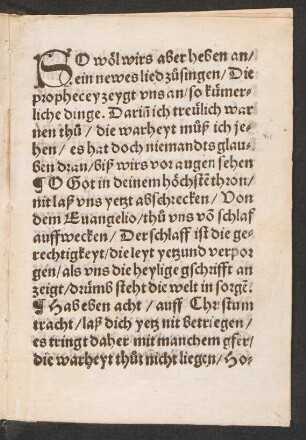 SO wöl wirs aber heben an/
ein newes lied zůsingen/ Die
prophecey zeygt vns an/ so kümer-
liche dinge. Dariñ ich treülich war
nen thů/ die warheyt můß ich je-
hen/ es hat doch niemandts glau-
ben dran/ biß wirs vor augen sehen
¶ O Got in deinem höchstē thron/
nit laß vns yetzt abschrecken/ Von
dem Euangelio/ thů vns vō schlaf
auffwecken/ Der schlaff ist die ge-
rechtigkeyt/ die leyt yetzund verpor
gen/ als vns die heylige gschrifft an
zeigt/ drümb steht die welt in sorgē.
¶ Hab eben acht/ auff Christum
tracht/ laß dich yetz nit betriegen/
es tringt daher mit manchem gfer/
die warheyt thůt nicht liegen/ Ho-